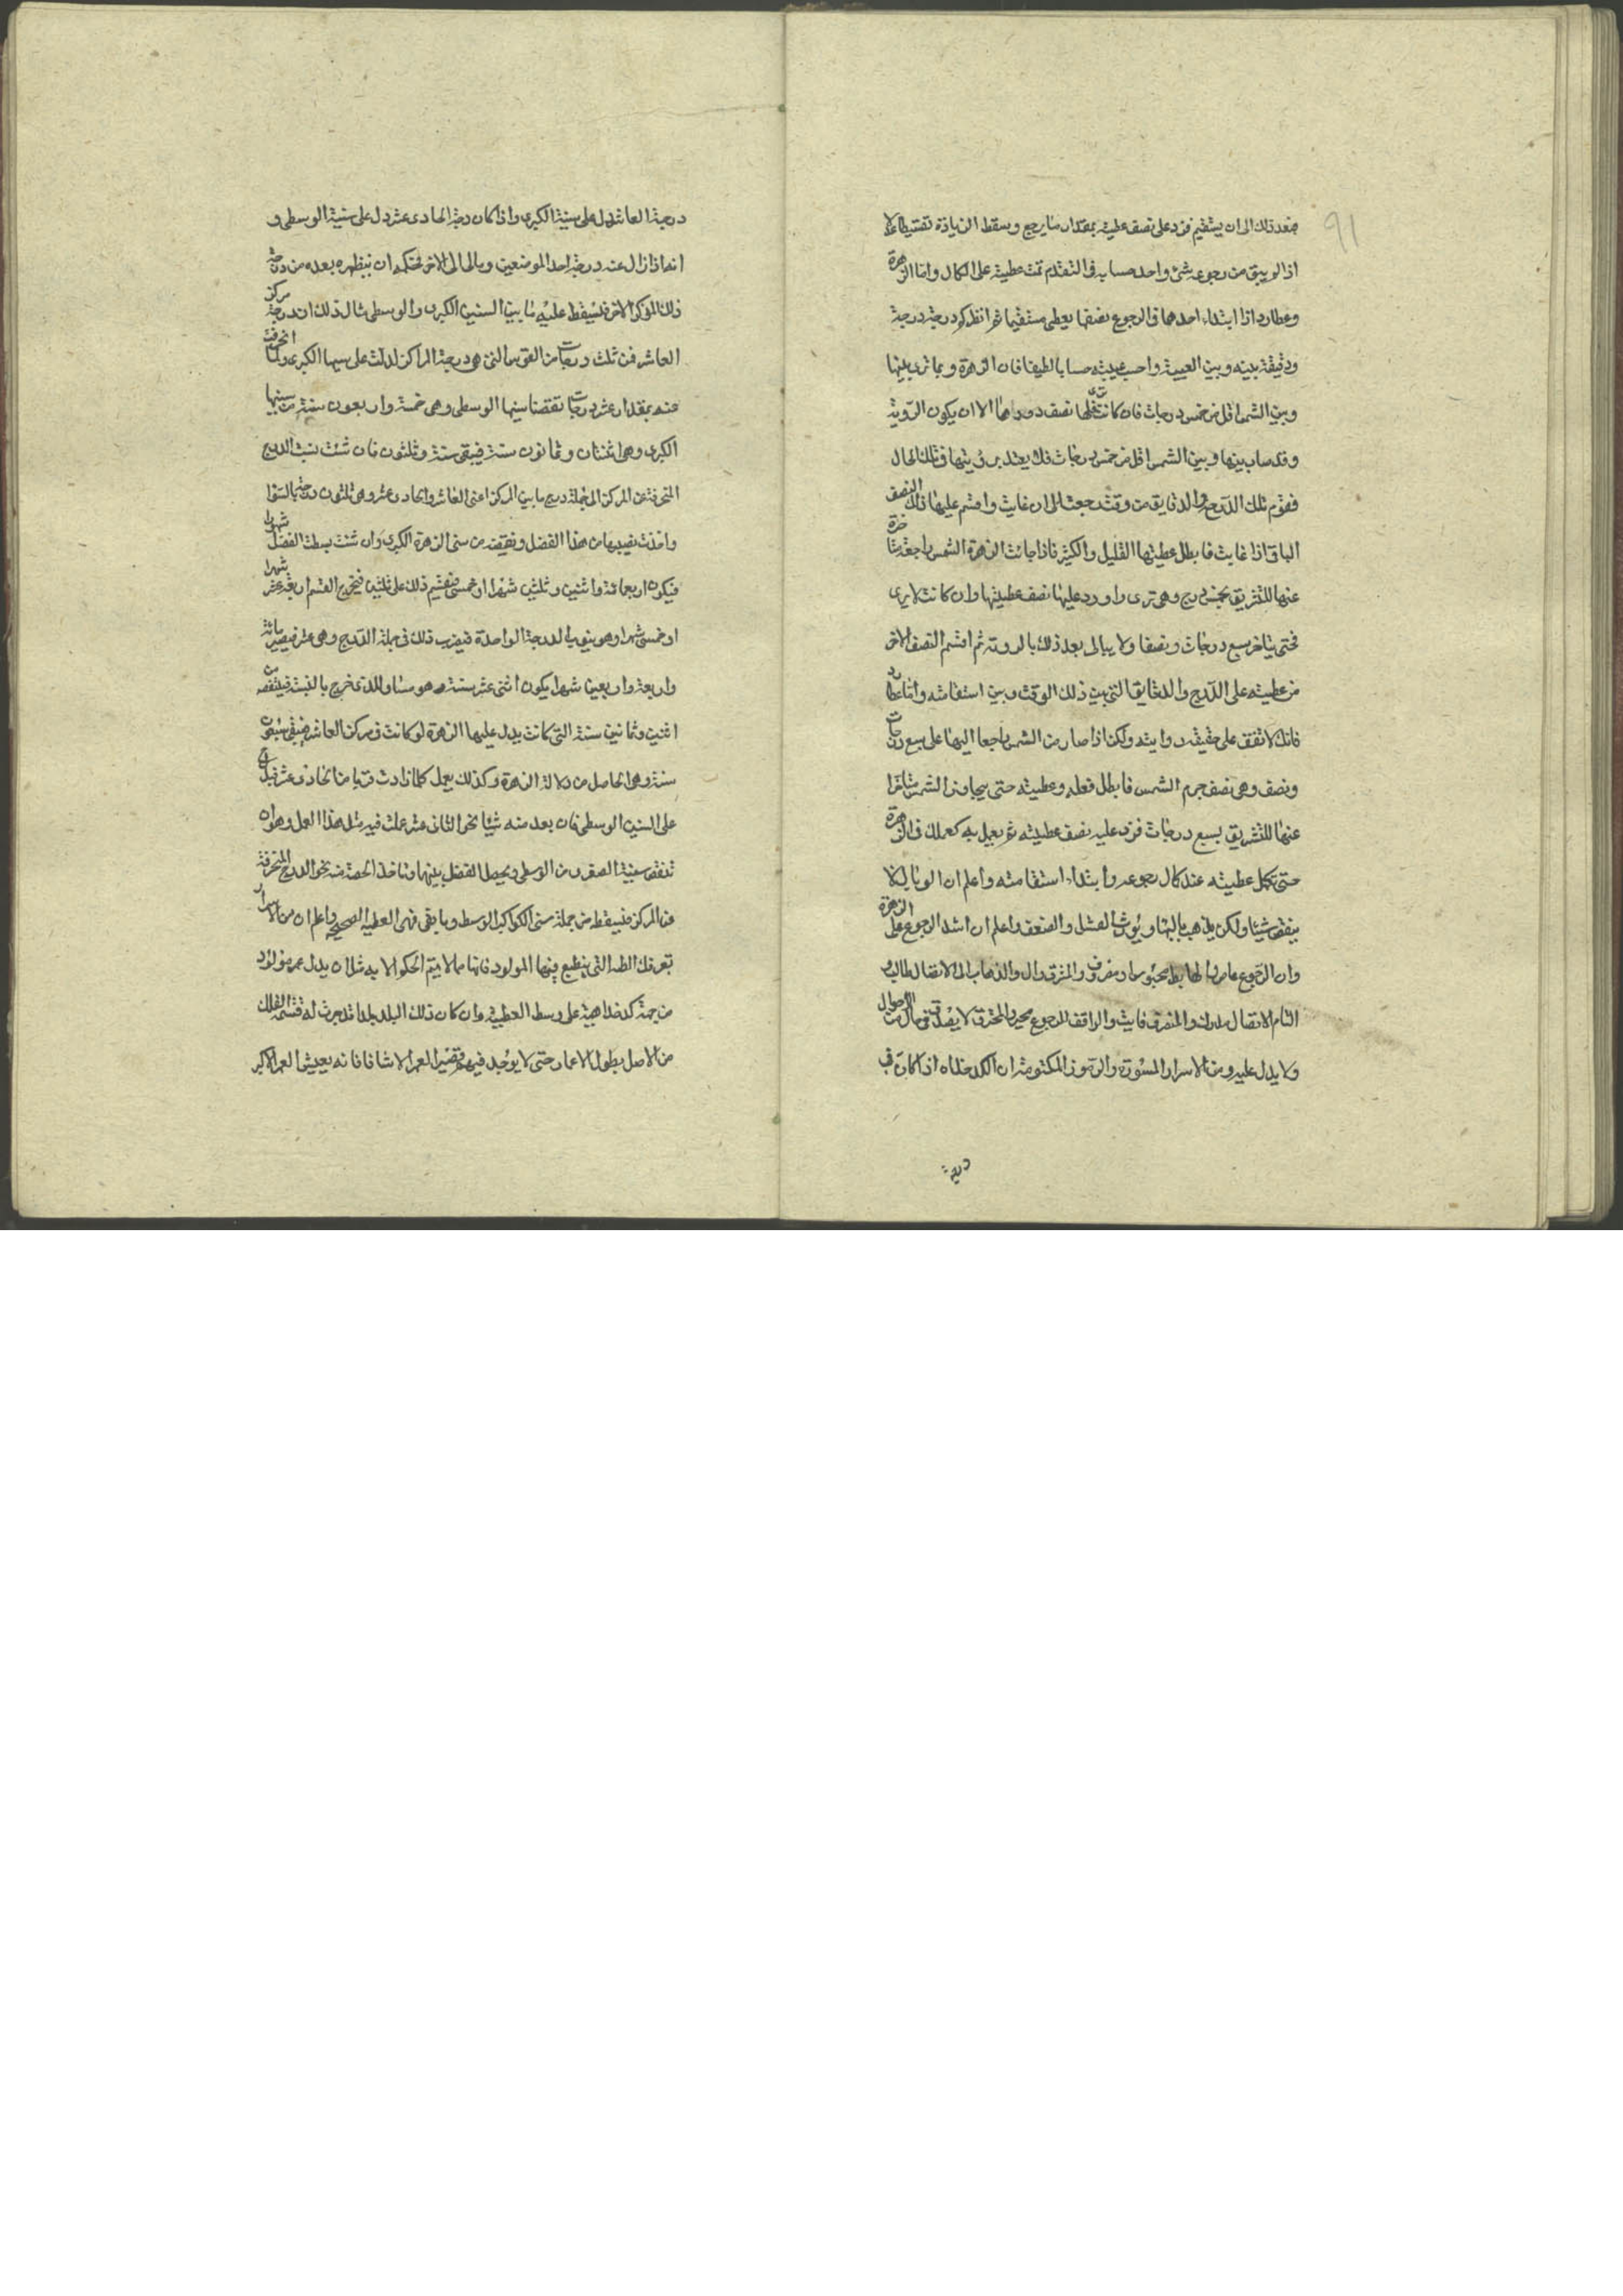 91
فبعد ذلك الى ان يستقيم فزد على نصف عطيته بمقدار ما يرجع ويسقط الزيادة تقسيطا
اذا لو يبق من رجوعه شئ واحد حسابه فى التقدم تمت عطيته على الكمال واما الزهرة
وعطارد اذا ابتداء احدهما فى الرجوع نصفها يعطى مستقيما ثم انظر كم درجة درجة
ودقيقة بينه وبين الغيبة واحسب غيبته حسابا لطيفا فان الزهرة وبما ترى بينها
وبين الشمس اقل من خمس درجات فان كانت نصف دورها الا ان يكون الروية
وقد صار بينها وبين الشمس اقل من خمس درجات فلا يعتد برؤيتها فى تلك الحال
فقوم تلك الدرج والدقايق من وقت رجعت الى ان غابت واقسم عليها ذلك النصف
الباقى اذا غابت فابطل عطيتها القليل والكثير فاذا جازت الزهرة الشمس راجعة متاخرة
عنها للتشريق بخمس درج وهى ترى واورد عليها نصف عطيتها وان كانت لا يرى
فحتى يتاخر سبع درجات ونصفا ولا يبالى بعد ذلك بالروية ثم اقسم النصف الاخر
من عطيته على الدرج والدقايق التى بين ذلك الوقت وبين استقامته واما عطارد
فانك لا تقف على حقيقة روايته ولكن اذا صار من الشمس راجعا اليها على سبع درجات
ونصف وهى نصف جرم الشمس فابطل فعله وعطيته حتى يجاوز الشمس متاخرا
عنها للتشريق بسبع درجات فزد عليه نصف عطيته ثم يعمل به كعملك فى الزهرة
حتى تكمل عطيته عند كمال رجوعه وابتداء استقامته واعلم ان الوبال لا
ينقص شيئا ولكن يذهب بالبهاو يورث الفشل والضعف واعلم ان اشد الرجوع على الزهرة
وان الرجوع عاص والهابط محبوس والذهاب الى الاتصال طالب و
التام الاتصال مدرك والمنصرف فايت والواقف للرجوع محير والمحترق لا يصدق فى حال من الاحوال
ولا يدل عليه ومن الاسرار المستورة والرموز المكنونة ان الكدخداه اذا كان فى
درجة
درجة العاشر دل على سنية الكبرى واذا كان درجة الحادى عشر دل على سنية الوسطى و
انه اذا زال عند درجة احد الموضعين ومال الى الاخر فحكمه ان ينظر بعده من درجة
ذلك المركز الاخر فيسقط عليه ما بين السنين الكبرى والوسطى مثال ذلك ان درجة مركز
العاشر فى ثلث درجات من القوس التى هى درجة المركز لدلت على سنيها الكبرى ولما انحرفت
عنه بمقدار عشر درجات نقصنا سنيها الوسطى وهى خمسة واربعون سنة من سنيها
الكبرى وهى اثنتان وثمانون سنة فيبقى سبعة وثلثون فان شئت نسبت الدرج
المنحرفة عن المركز الى جملة درج ما بين المركز اعنى العاشر والحادى عشر وهى ثلثون درجة بالسوا
واخذت نصيبها من هذا الفضل ونقصته من سنى الزهرة الكبرى وان شئت بسطت الفضل شهورا
فيكون اربعمائة واثنين وثلثين شهرا او خمسى فيقسم ذلك على ثلثين فيخرج القسم اربعة عشر شهرا
او خمسى شهرا وهو ينوب للدرجة الواحدة فيضرب ذلك فى جملة الدرج وهى عشر فيصير مائة
واربعة واربعين شهرا يكون اثنى عشر سنة وهو مساو للذى خرج بالنسبة فينقصه من
اثنين وثمانين سنة التى كانت يدل عليها الزهرة لو كانت فى مركز العاشر فيبقى سبعون
سنة وهى الحاصل من دلالة الزهرة وكذلك يعمل كلما زادت قربا من الحادى عشر
على السنين الوسطى فان بعد منه شيئا نحو الثانى عشر عملت فيه مثل هذا العمل وهو ان
تنقص سنية الصغرى من الوسطى ويحصل الفضل بينهما وناخذ الحصة منه نحو الدرج المنحرفة
عن المركز فيسقط من جملة سنى الكواكب الوسط وما بقى فهى العطية الصحيحة واعلم ان من الاسرار
تعرفك الطبه التى ينطبع فيها المولود فانها مما لا يتم الحكم الا به مثل ان يدل عمر مولود
من جهة كدخداهية على وسط العطية وان كان ذلك البلد بلدا قد جرت له قسمة الفلك
من الاصل بطول الاعمار حتى لا يوجد فيهم قصير العمر الا شاذا فانه يعيش العمر الاكبر